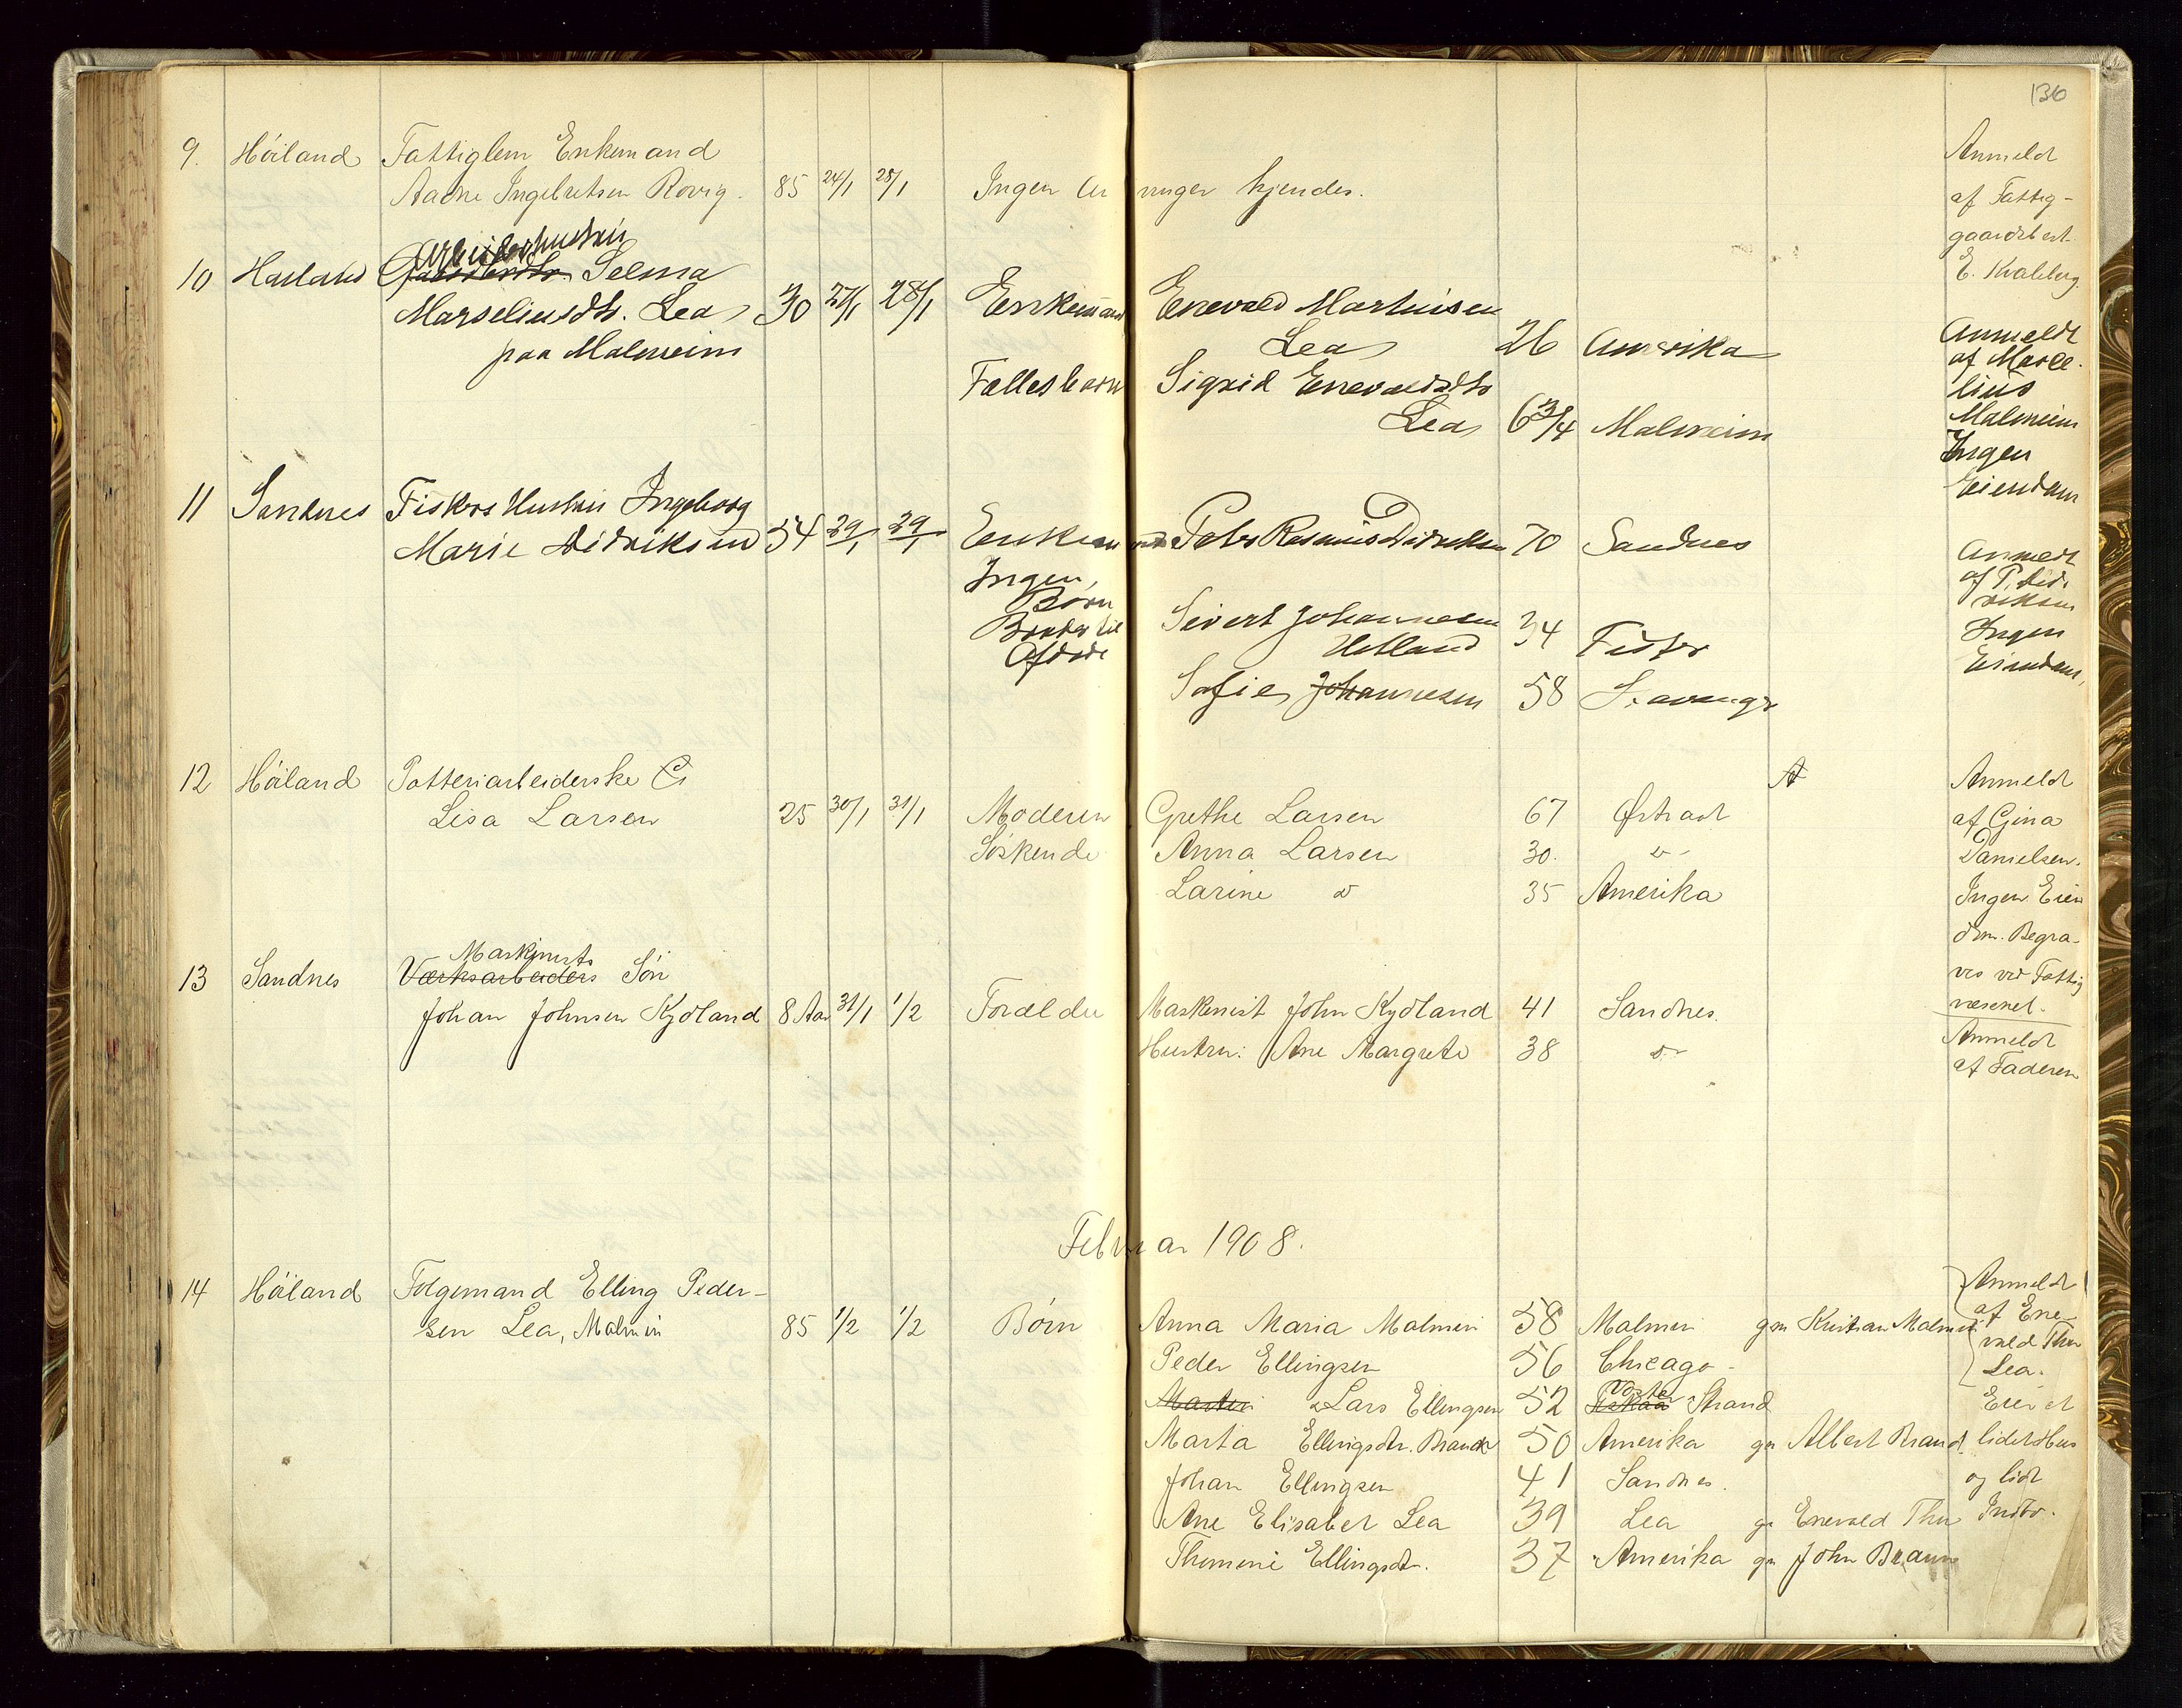 130
9. Høiland Fattiglem Enkemand
Aadne Ingebretsen Rovig. 85 24/1 28/1 Ingen Arvinger kjendes.
Anmeldt
af Fattig-
gaardsbest.
E. Kvaleberg.
10 Høiland Arbeiderhustru
Selma
Marseliusdtr. Lea 30 27/1 28/1 Enkemand Enevald Martinsen
paa Malmeim Lea 26 Amerika
Fællesbarn Sigrid Enevaldsdtr
Lea 6 3/4 Malmeim
Anmeldt
af Marce-
lius
Malmeim
Ingen
Eiendom
11 Sandnes Fiskers Hustru Ingeborg
Marie Didriksen 54 29/1 29/1 Enkemand Peder Rasmus Didriksen 70 Sandnes
Ingen
Børn
Broder til Sivert Johannesen
Afdøde Hetland 34 Fister
Sofie Johannesen 58 Stavanger
Anmeldt
af P. Did-
riksen
Ingen
Eiendom.
12 Høiland Potteriarbeiderske
Lisa Larsen 25 30/1 31/1 Moderen Grethe Larsen 67 Østradt
Søskende Anna Larsen 30. do
Larine do 35 Amerika
Anmeldt
af Gina
Danielsen.
Ingen Eien
dom. Begra-
ves ved Fattig
væsenet.
13 Sandnes Maskinists
Værksarbeiders Søn
Johan Johnsen Kydland 8 Aar 31/1 1/2 Forældre Maskinist John Kydland 41 Sandnes.
Hustru: Ane Margrete 38 do
Anmeldt
af Faderen
Februar 1908.
14 Høiland Folgemand Elling Peder-
sen Lea, Malmin 85 1/2 1/2 Børn Anna Maria Malmin 58 Malmin gm Kristian Malmin
Peder Ellingsen 56 Chicago
Lars Ellingsen 52 Strand
Marta Ellingsdtr. Brandt 50 Amerika gm Albert Brandt
Johan Ellingsen 41 Sandnes.
Ane Elisabet Lea 39 Lea gm Enevald Thu
Thomine Ellingsdtr. 37 Amerika gm John Braun
Anmeldt
af Ene-
vald Thu
Lea.
Eiet et
lidet Hus
og lidt
Indbo.